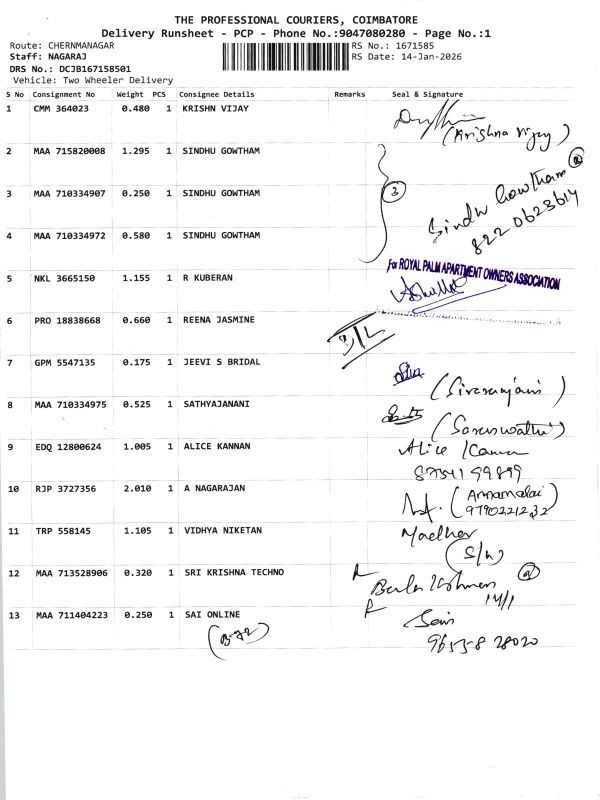 THE PROFESSIONAL COURIERS, COIMBATORE
Delivery Runsheet - PCP - Phone No.:9047080280 - Page No.:1
Route: CHERNMANAGAR RS No.: 1671585
Staff: NAGARAJ RS Date: 14-Jan-2026
DRS No.: DCJB167158501
Vehicle: Two Wheeler Delivery
S No Consignment No Weight PCS Consignee Details Remarks Seal & Signature
1 CMM 364023 0.480 1 KRISHN VIJAY
(Krishna Vijay)
2 MAA 715820008 1.295 1 SINDHU GOWTHAM
3 MAA 710334907 0.250 1 SINDHU GOWTHAM
3
Sindu Gowtham
822 0623614
4 MAA 710334972 0.580 1 SINDHU GOWTHAM
For ROYAL PALM APARTMENT OWNERS ASSOCIATION
5 NKL 3665150 1.155 1 R KUBERAN
6 PRO 18838668 0.660 1 REENA JASMINE
D/L
7 GPM 5547135 0.175 1 JEEVI S BRIDAL
(Sivaranjani)
8 MAA 710334975 0.525 1 SATHYAJANANI
(Saraswathi)
9 EDQ 12800624 1.005 1 ALICE KANNAN
Alice
10 RJP 3727356 2.010 1 A NAGARAJAN
(Annamalai)
9790221232
11 TRP 558145 1.105 1 VIDHYA NIKETAN
(S/h)
12 MAA 713528906 0.320 1 SRI KRISHNA TECHNO
14/1
13 MAA 711404223 0.250 1 SAI ONLINE
(B-72)
Sair
9655828020